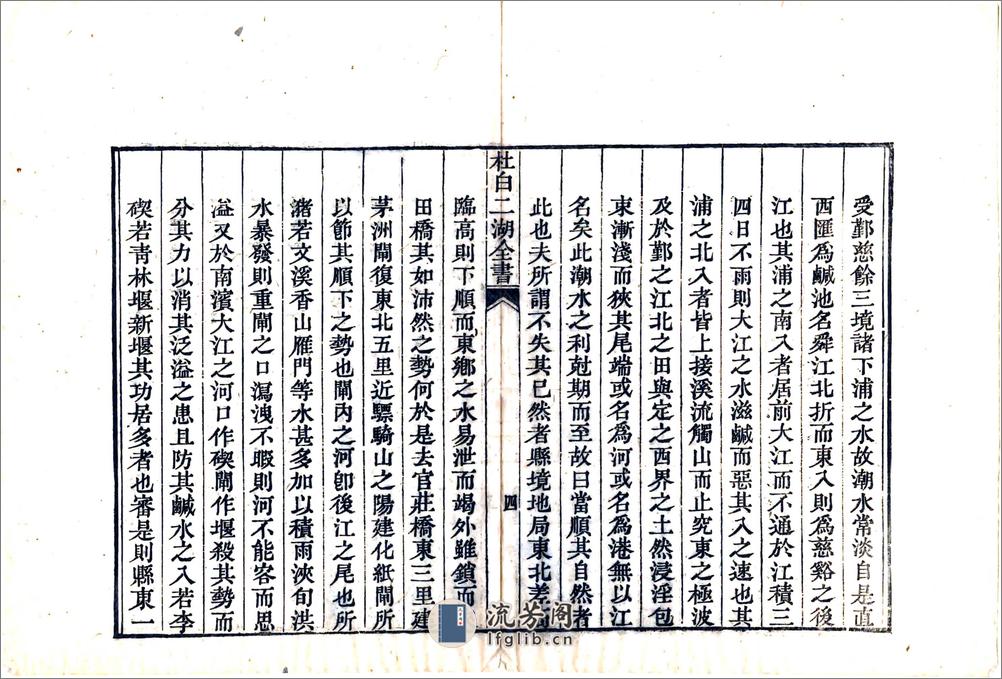 受鄞慈餘三境諸下浦之水故潮水常淡自是直
西匯爲鹹池名舜江北折而東入則爲慈谿之後
江也其浦之南入者居前大江而不通於江積三
四日不雨則大江之水滋鹹而惡其入之速也其
浦之北入者皆上接溪流觸山而止究東之極波
及於鄞之江北之田與定之西界之土然浸淫包
東漸淺而狹其尾端或名為河或名為港無以江
名矣此潮水之利尅期而至故曰當順其自然者
此也夫所謂不失其已然者縣境地局東北差
杜白二湖全書
四
臨高則下順而東鄉之水易泄而竭外雖鎖而
田橋其如沛然之勢何於是去官莊橋東三里建
茅洲閘復東北五里近驃騎山之陽建化紙閘所
以節其順下之勢也閘內之河卽後江之尾也所
瀦若文溪香山雁門等水甚多加以積雨浹旬洪
水暴發則重閘之口瀉洩不暇則河不能客而思
溢又於南濱大江之河口作碶閘作堰殺其勢而
分其力以消其泛溢之患且防其鹹水之入若李
碶若青林堰新堰其功居多者也審是則縣東一
流芳阁
lfglib.cn